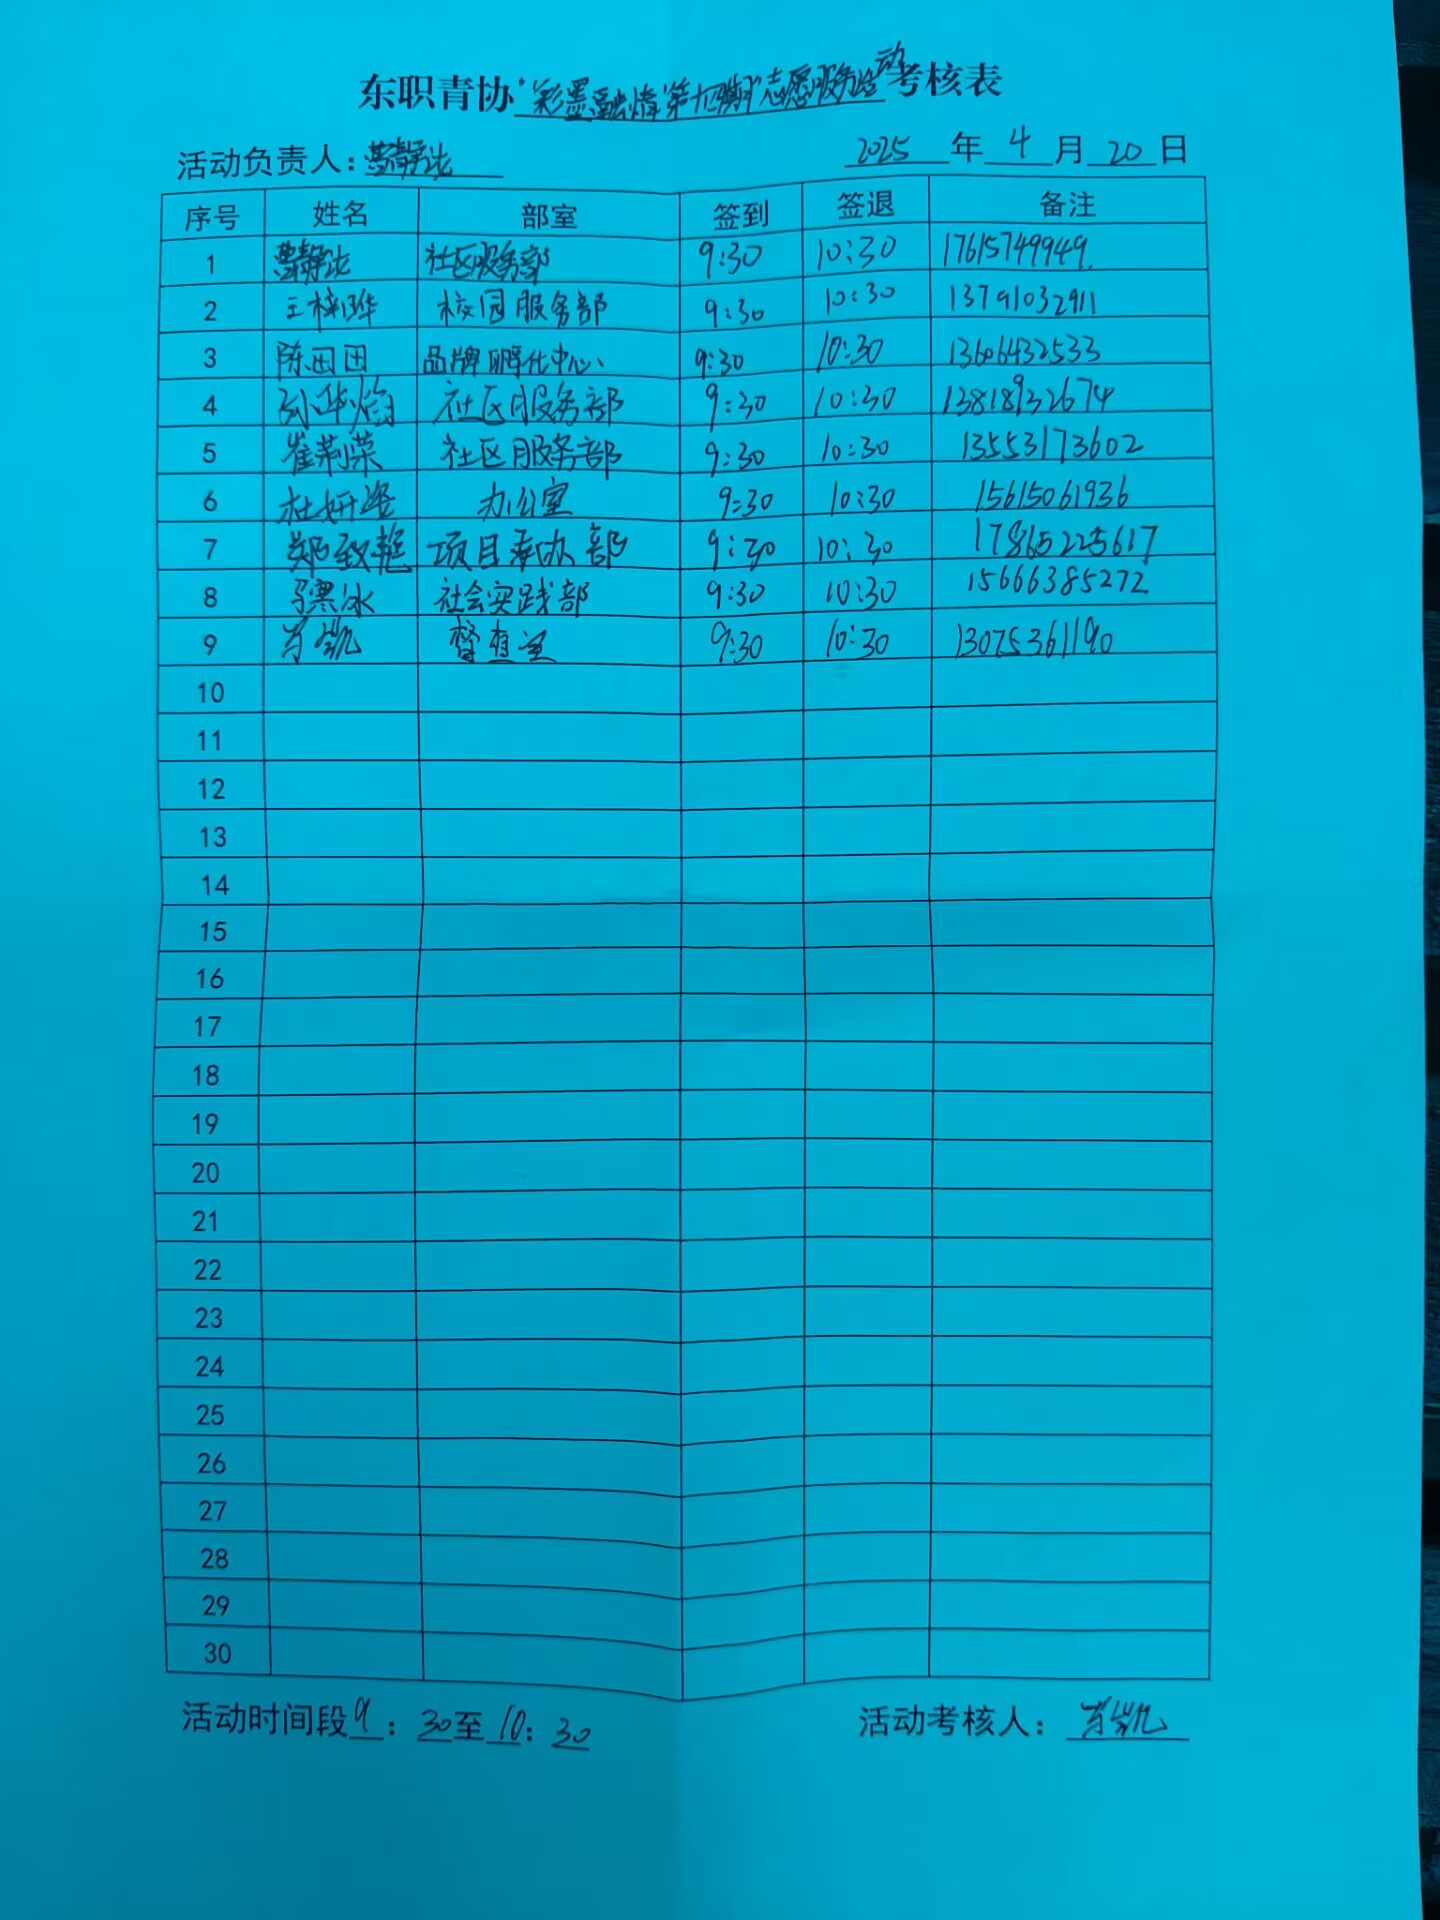 东职青协“彩墨融情”第十四期”志愿服务活动考核表
活动负责人: 2025年4月20日
序号 姓名 部室 签到 签退 备注
1 社区服务部 9:30 10:30 17615749949.
2 王梓晔 校园服务部 9:30 10:30 13791032911
3 陈田田 品牌孵化中心 9:30 10:30 13606432533
4 孙华焰 社区服务部 9:30 10:30 13818932674
5 崔莉荣 社区服务部 9:30 10:30 13553173602
6 杜妍 办公室 9:30 10:30 15615061936
7 郑致 项目承办部 9:30 10:30 17865225617
8 马寒冰 社会实践部 9:30 10:30 15666385272
9 肖凯 督查室 9:30 10:30 13075361190
10
11
12
13
14
15
16
17
18
19
20
21
22
23
24
25
26
27
28
29
30
活动时间段9:30至10:30 活动考核人: 肖凯